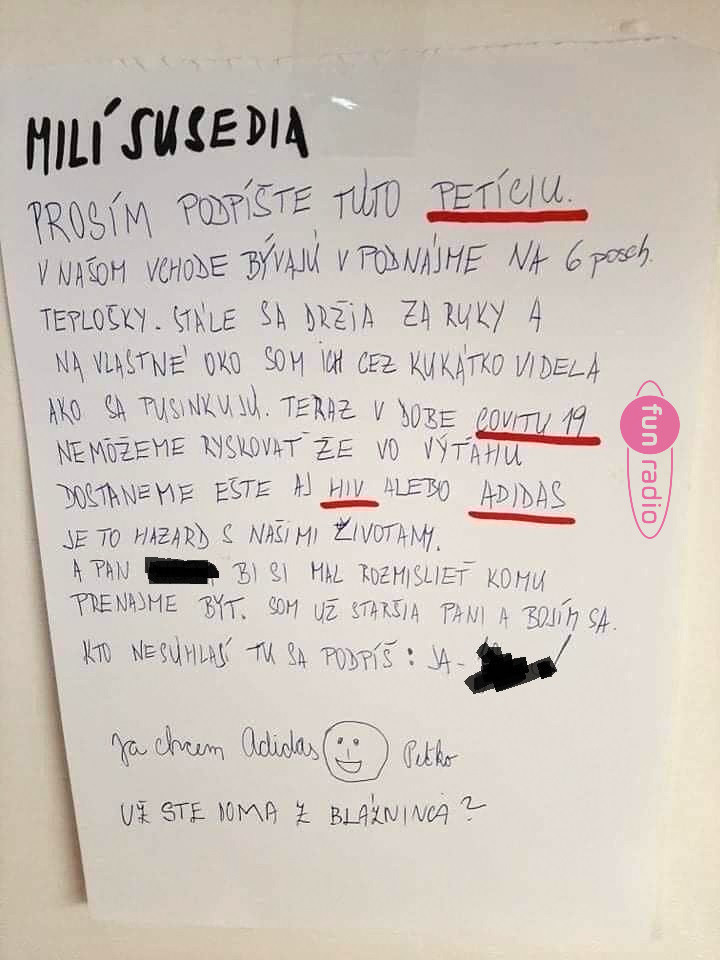 MILÍ SUSEDIA
PROSÍM PODPÍŠTE TÚTO PETÍCIU.
V NAŠOM VCHODE BÝVAJÚ V PODNÁJME NA 6 posch.
TEPLOŠKY. STÁLE SA DRŽIA ZA RUKY A
NA VLASTNÉ OKO SOM ICH CEZ KUKÁTKO VIDELA
AKO SA PUSINKUJÚ. TERAZ V DOBE COVITU 19
NEMÔŽEME RYSKOVAŤ ŽE VO VÝŤAHU
DOSTANEME EŠTE AJ HIV ALEBO ADIDAS
JE TO HAZARD S NAŠIMI ŽIVOTAMY.
A PAN BI SI MAL ROZMISLIEŤ KOMU
PRENAJME BYT. SOM UŽ STARŠIA PANI A BOJÍM SA.
KTO NESÚHLASÍ TU SA PODPÍŠ: JA -
Ja chcem Adidas Peťko
UŽ STE DOMA Z BLÁZNINCA?
fun radio